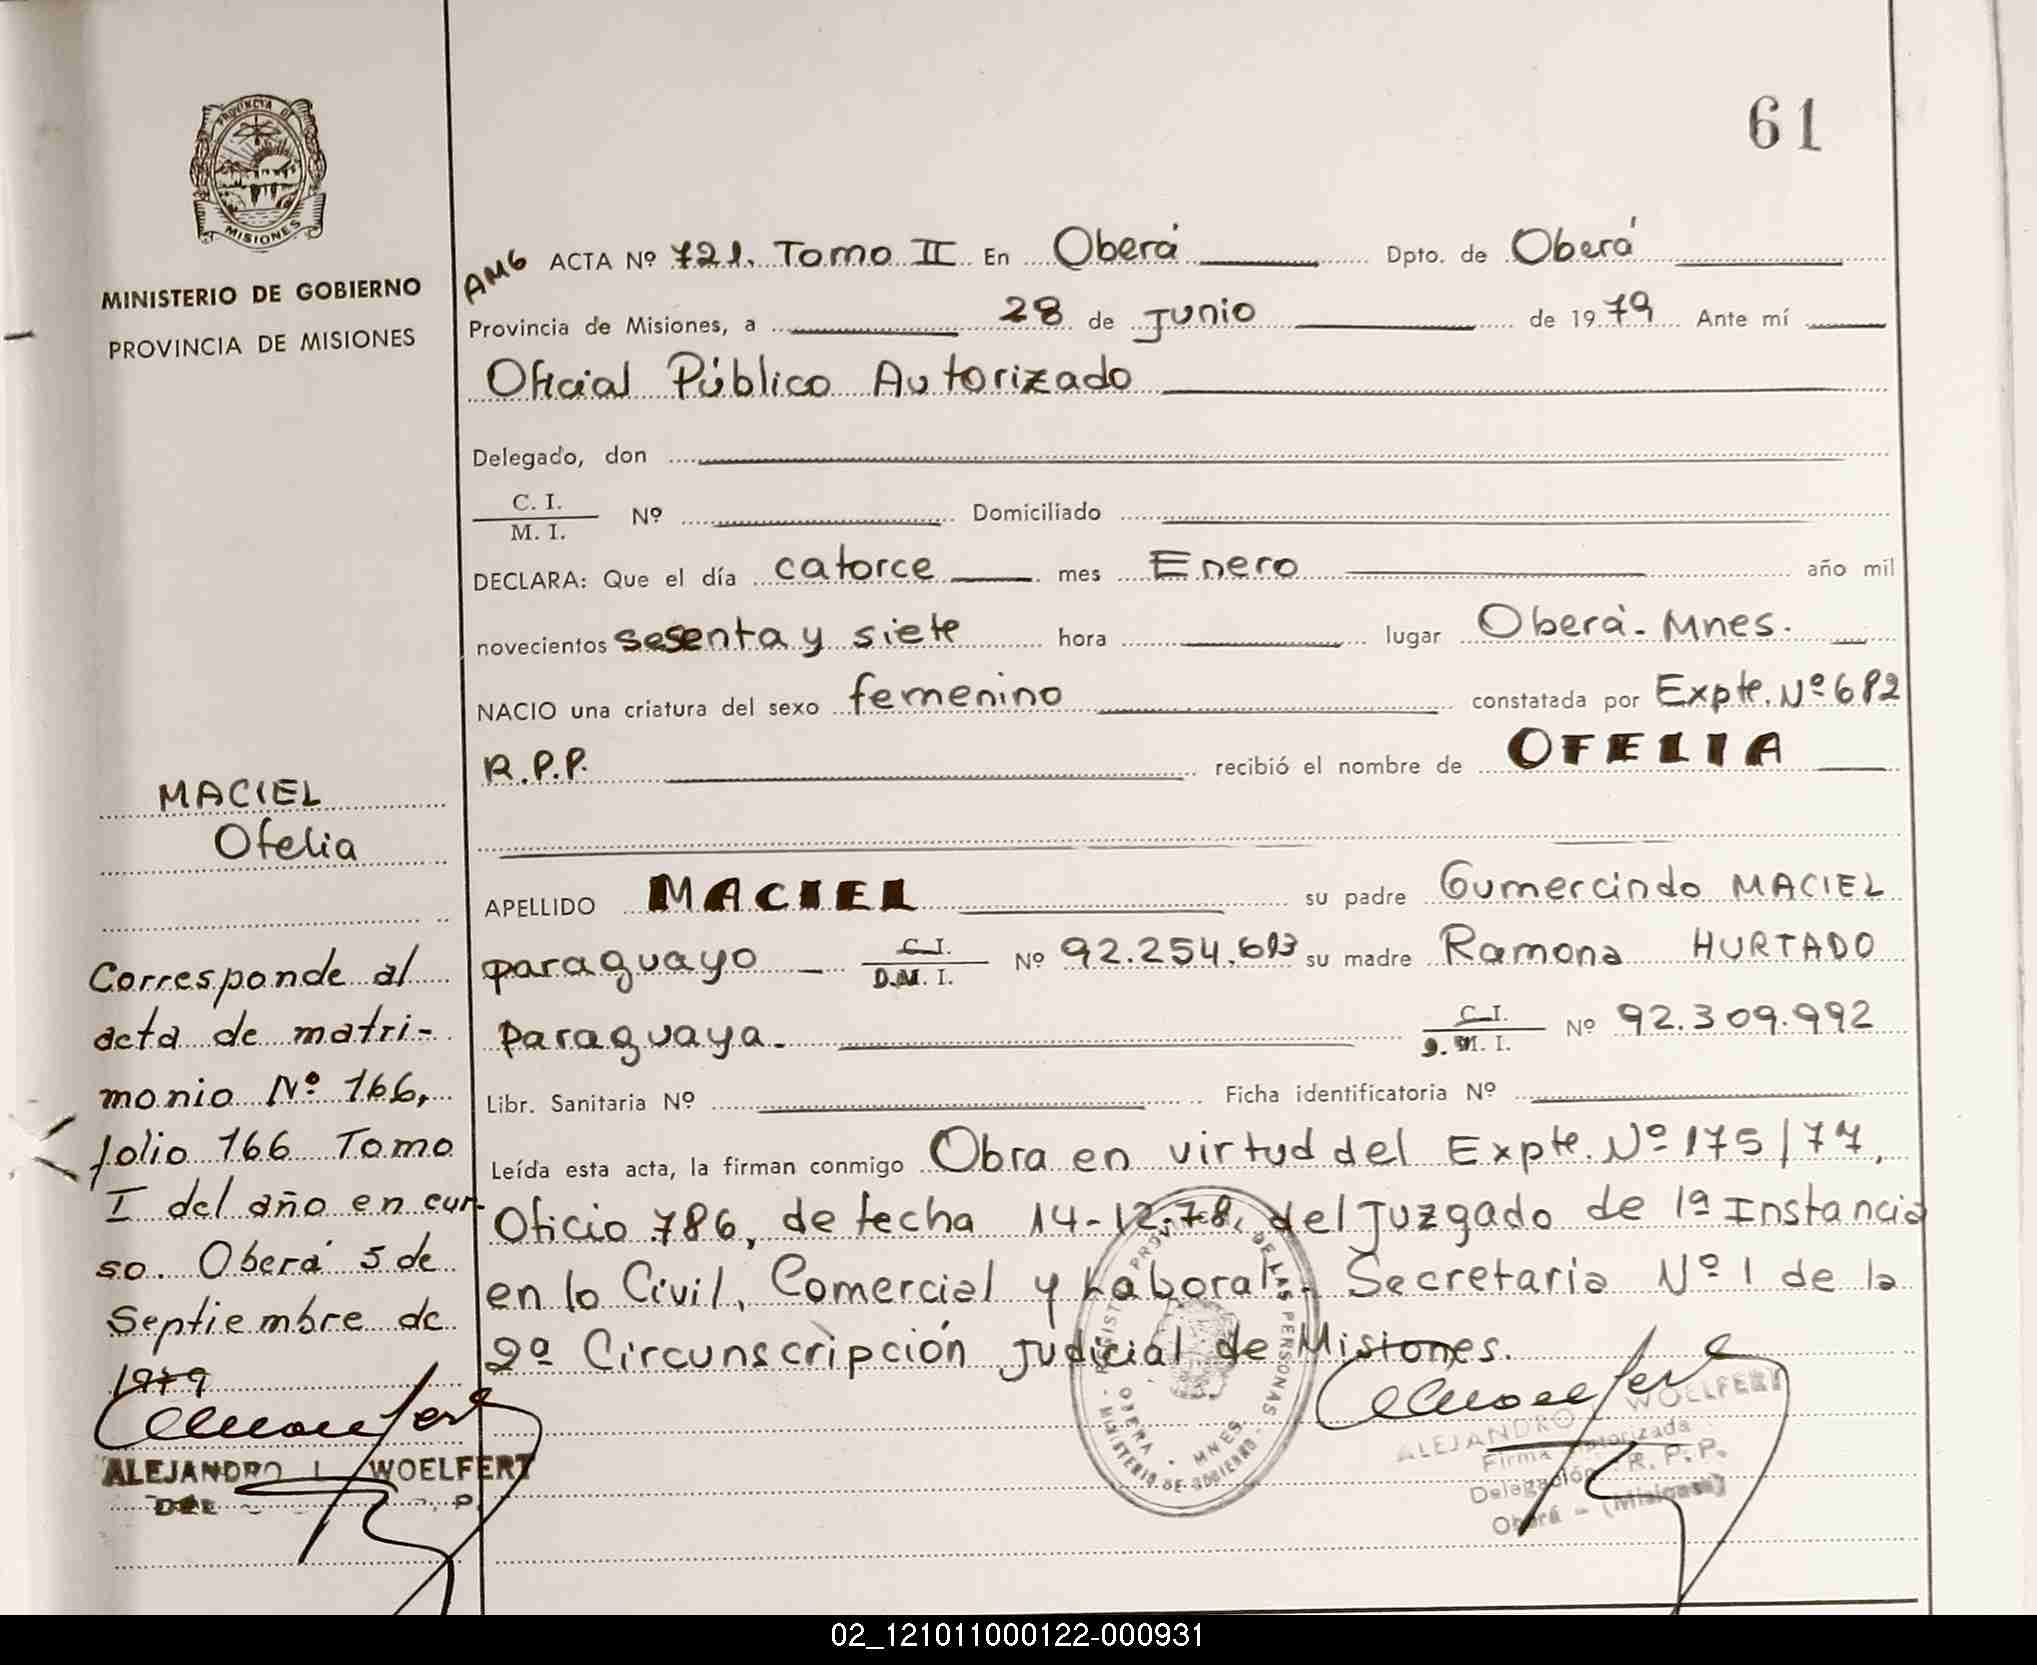 61
PROVINCIA DE
MISIONES
MINISTERIO DE GOBIERNO
PROVINCIA DE MISIONES
MACIEL
Ofelia
Corresponde al
acta de matri-
monio Nº 166,
folio 166 Tomo
I del año en cur-
so. Oberá 5 de
Septiembre de
1979
ALEJANDRO L. WOELFERT
AMG ACTA Nº 721. Tomo II En Oberá Dpto. de Oberá
Provincia de Misiones, a 28 de Junio de 1979 Ante mí
Oficial Público Autorizado
Delegado, don
C. I.
M. I. Nº Domiciliado
DECLARA: Que el día catorce mes Enero año mil
novecientos sesenta y siete hora lugar Oberá- Mnes.
NACIO una criatura del sexo femenino constatada por Expte. Nº 682
R.P.P. recibió el nombre de OFELIA
APELLIDO MACIEL su padre Gumercindo MACIEL
paraguayo C.I. D.M.I. Nº 92.254.613 su madre Ramona HURTADO
paraguaya. C.I. D.M.I. Nº 92.309.992
Libr. Sanitaria Nº Ficha identificatoria Nº
Leída esta acta, la firman conmigo Obra en virtud del Expte. Nº 175/77,
Oficio 786, de fecha 14-12-78, del Juzgado de 1ª Instancia
en lo Civil, Comercial y Laboral. Secretaria Nº 1 de la
2º Circunscripción Judicial de Misiones.
DE LAS PERSONAS
OBERA - MNES.
MINISTERIO DE GOBIERNO
ALEJANDRO WOELFERT
Firma Autorizada
Delegación R. P. P.
Oberá - (Misiones)
02_121011000122-000931